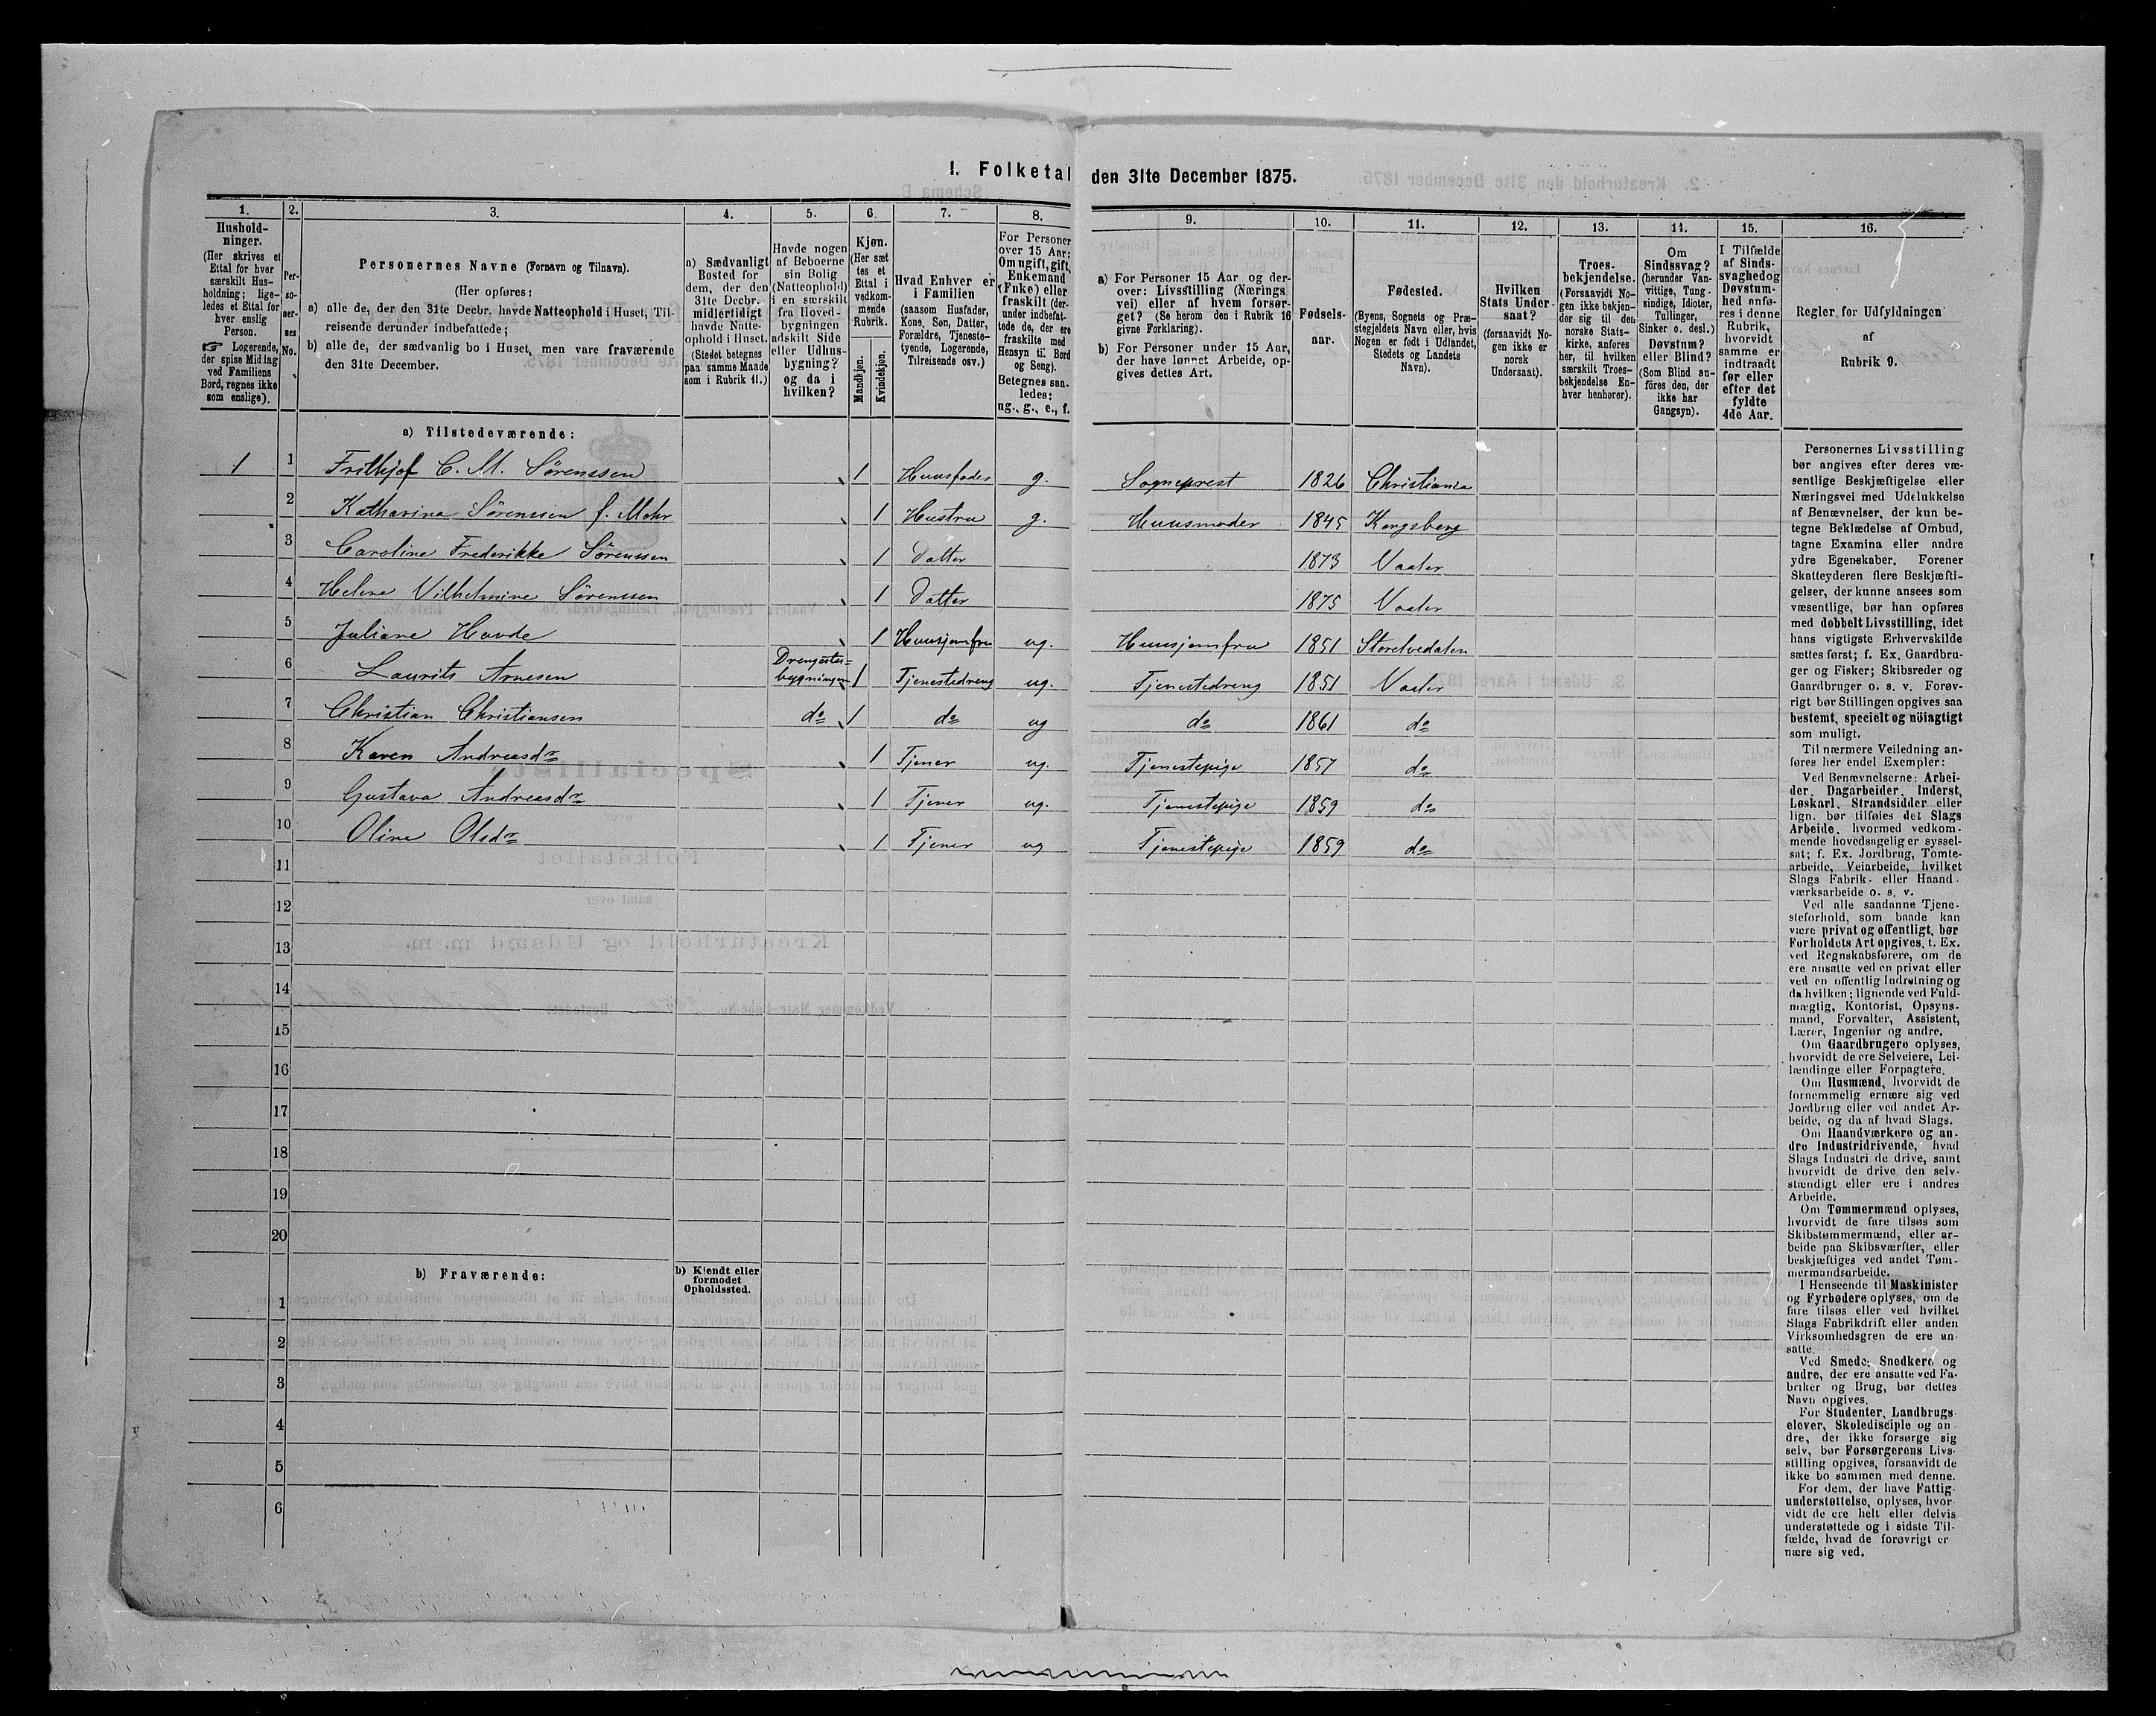 I. Folketal den 31te December 1875.
1. 2. 3. 4. 5. 6. 7. 8. 9. 10. 11. 12. 13. 14. 15. 16.
Hushold-
ninger.
(Her skrives et
Ettal for hver
særskilt Hus-
holdning; lige-
ledes et Ettal for
hver enslig
Person.
☞ Logerende,
der spise Middag
ved Familiens
Bord, regnes ikke
som enslige).
Per-
so-
ner-
nes
No.
Personernes Navne (Fornavn og Tilnavn).
(Her opføres:
a) alle de, der den 31te Decbr. havde Natteophold i Huset, Til-
reisende derunder indbefattede;
b) alle de, der sædvanlig bo i Huset, men vare fraværende
den 31te December.
a) Sædvanligt
Bosted for
dem, der den
31te Decbr.
midlertidigt
havde Natte-
ophold i Huset.
(Stedet betegnes
paa samme Maade
som i Rubrik 11.)
Havde nogen
af Beboerne
sin Bolig
(Natteophold)
i en særskilt
fra Hoved-
bygningen
adskilt Side
eller Udhus-
bygning?
og da i
hvilken?
Kjøn.
(Her sæt
tes et
Ettal i
vedkom-
mende
Rubrik.
Mandkjøn.
Kvindekjøn.
Hvad Enhver er
i Familien
(saasom Husfader,
Kone, Søn, Datter,
Forældre, Tjeneste-
tyende, Logerende,
Tilreisende osv.)
For Personer
over 15 Aar:
Om ugift, gift,
Enkemand
(Enke) eller
fraskilt (der-
under indbefat-
tede de, der ere
fraskilte med
Hensyn til Bord
og Seng).
Betegnes saa-
ledes:
ug., g., e., f.
a) For Personer 15 Aar og der-
over: Livsstilling (Nærings
vei) eller af hvem forsør-
get? (Se herom den i Rubrik 16
givne Forklaring).
b) For Personer under 15 Aar,
der have lønnet Arbeide, op-
gives dettes Art.
Fødsels-
aar.
Fødested.
(Byens, Sognets og Præ-
stegjeldets Navn eller, hvis
Nogen er født i Udlandet,
Stedets og Landets
Navn).
Hvilken
Stats Under-
saat?
(forsaavidt No-
gen ikke er
norsk
Undersaat).
Troes-
bekjendelse.
(Forsaavidt No-
gen ikke bekjen-
der sig til den
norske Stats-
kirke, anføres
her, til hvilken
særskilt Troes-
bekjendelse En-
hver henhører).
Om
Sindssvag?
(herunder Van-
vittige, Tung-
sindige, Idioter,
Tullinger,
Sinker o. desl.)
Døvstum?
eller Blind?
(Som Blind an-
føres den, der
ikke har
Gangsyn).
I Tilfælde
af Sinds-
svaghed og
Døvstum-
hed anfø-
res i denne
Rubrik,
hvorvidt
samme er
indtraadt
før eller
efter det
fyldte
4de Aar.
Regler for Udfyldningen
af
Rubrik 9.
a) Tilstedeværende:
1 1 Frithjof C. M. Sörenssen 1 Huusfader g. Sogneprest 1826 Christiania
2 Katharina Sörenssen f. Mohr 1 Hustru g. Huusmoder 1845 Kongsberg
3 Caroline Frederikke Sörenssen 1 Datter 1873 Vaaler
4 Helene Vilhelmine Sörenssen 1 Datter 1875 Vaaler
5 Juliane Hovde 1 Huusjomfru ug. Huusjomfru 1851 Storelvedalen
6 Laurits Arnesen Drengestue-
bygningen 1 Tjenestedreng ug. Tjenestedreng 1851 Vaaler
7 Christian Christiansen do 1 do ug do 1861 do
8 Karen Andreasdr 1 Tjener ug. Tjenestepige 1857 do
9 Gustava Andreasdr 1 Tjener ug. Tjenestepige 1859 do
10 Oline Olsdr 1 Tjener ug Tjenestepige 1859 do
11
12
13
14
15
16
17
18
19
20
b) Fraværende:
b) Kjendt eller
formodet
Opholdssted.
1
2
3
4
5
6
Personernes Livsstilling
bør angives efter deres væ-
sentlige Beskjæftigelse eller
Næringsvei med Udelukkelse
af Benævnelser, der kun be-
tegne Beklædelse af Ombud,
tagne Examina eller andre
ydre Egenskaber. Forener
Skatteyderen flere Beskjæfti-
gelser, der kunne ansees som
væsentlige, bør han opføres
med dobbelt Livsstilling, idet
hans vigtigste Erhvervskilde
sættes først; f. Ex. Gaardbru-
ger og Fisker; Skibsreder og
Gaardbruger o. s. v. Forøv-
rigt bør Stillingen opgives saa
bestemt, specielt og nöiagtigt
som muligt.
Til nærmere Veiledning an-
føres her endel Exempler:
Ved Benævnelserne: Arbei-
der, Dagarbeider, Inderst,
Løskarl, Strandsidder eller
lign. bør tilføies det Slags
Arbeide, hvormed vedkom-
mende hovedsagelig er syssel-
sat; f. Ex. Jordbrug, Tomte-
arbeide, Veiarbeide, hvilket
Slags Fabrik- eller Haand-
værksarbeide o. s. v.
Ved alle saadanne Tjene-
steforhold, som baade kan
være privat og offentligt, bør
Forholdets Art opgives, t. Ex.
ved Regnskabsførere, om de
ere ansatte ved en privat eller
ved en offentlig Indretning og
da hvilken; lignende ved Fuld-
mægtig, Kontorist, Opsyns-
mand, Forvalter, Assistent,
Lærer, Ingeniør og andre.
Om Gaardbrugere oplyses,
hvorvidt de ere Selveiere, Lei-
lændinge eller Forpagtere.
Om Husmænd, hvorvidt de
fornemmelig ernære sig ved
Jordbrug eller ved andet Ar-
beide, og da af hvad Slags.
Om Haandværkere og an-
dre Industridrivende, hvad
Slags Industri de drive, samt
hvorvidt de drive den selv-
stændigt eller ere i andres
Arbeide.
Om Tømmermænd oplyses,
hvorvidt de fare tilsøs som
Skibstømmermænd, eller ar-
beide paa Skibsværfter, eller
beskjæftiges ved andet Tøm-
mermandsarbeide.
I Henseende til Maskinister
og Fyrbødere oplyses, om de
fare tilsøs eller ved hvilket
Slags Fabrikdrift eller anden
Virksomhedsgren de ere an-
satte.
Ved Smede, Snedkere og
andre, der ere ansatte ved Fa-
briker og Brug, bør dettes
Navn opgives.
For Studenter, Landbrugs-
elever, Skoledisciple og an-
dre, der ikke forsørge sig
selv, bør Forsørgerens Livs-
stilling opgives, forsaavidt de
ikke bo sammen med denne.
For dem, der have Fattig-
understøttelse, oplyses, hvor-
vidt de ere helt eller delvis
understøttede og i sidste Til-
fælde, hvad de forøvrigt er
nære sig ved.